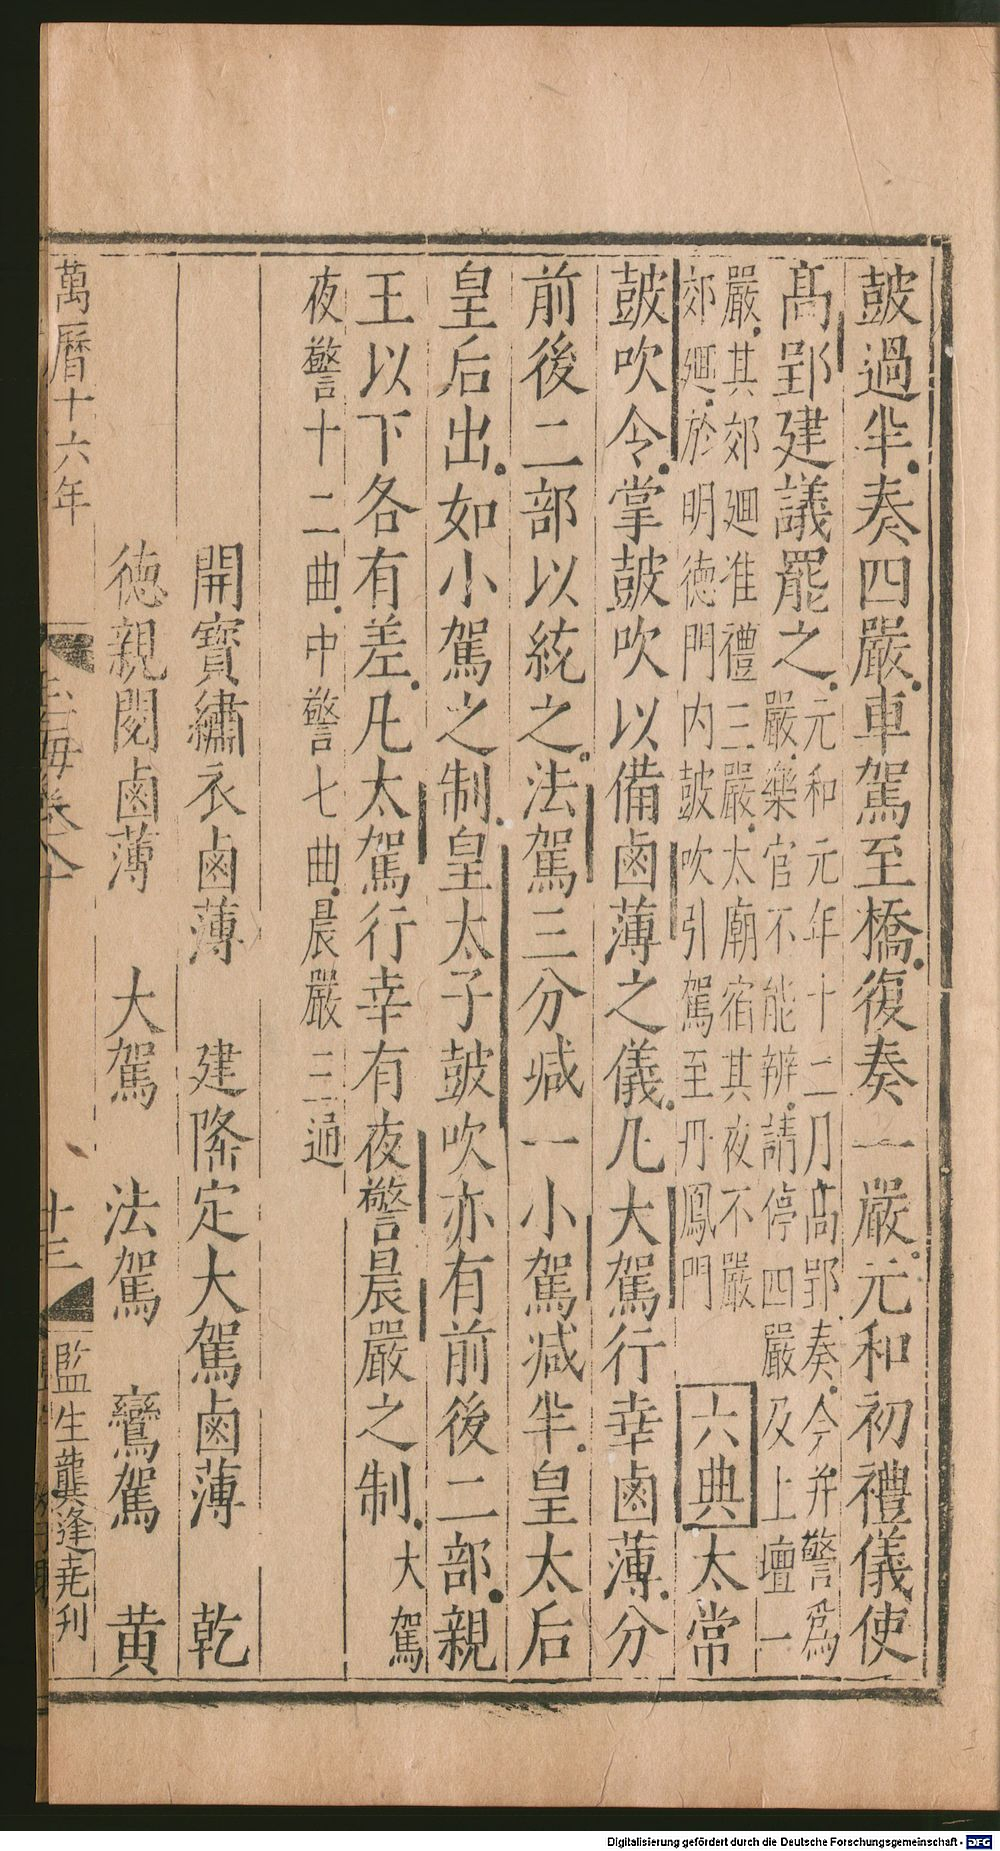 鼓過半奏四嚴車駕至橋復奏一嚴元和初禮儀使
高郢建議罷之元和元年十二月高郢奏今并警爲
嚴樂官不能辨請停四嚴及上壇一
嚴其郊廻准禮三嚴太廟宿其夜不嚴
郊廻於明德門内鼓吹引駕至丹鳳門
六典太常
鼓吹令掌鼓吹以備鹵薄之儀凡大駕行幸鹵薄分
前後二部以統之法駕三分減一小駕減半皇太后
皇后出如小駕之制皇太子鼓吹亦有前後二部親
王以下各有差凡太駕行幸有夜警晨嚴之制大駕
夜警十二曲中警七曲晨嚴三通
開寶繡衣鹵薄 建隆定大駕鹵薄 乾
德親閱鹵薄 大駕 法駕 鸞駕 黄
萬曆十六年
玉海卷八十
十三
監生龔逢尭刊
Digitalisierung gefördert durch die Deutsche Forschungsgemeinschaft - DFG